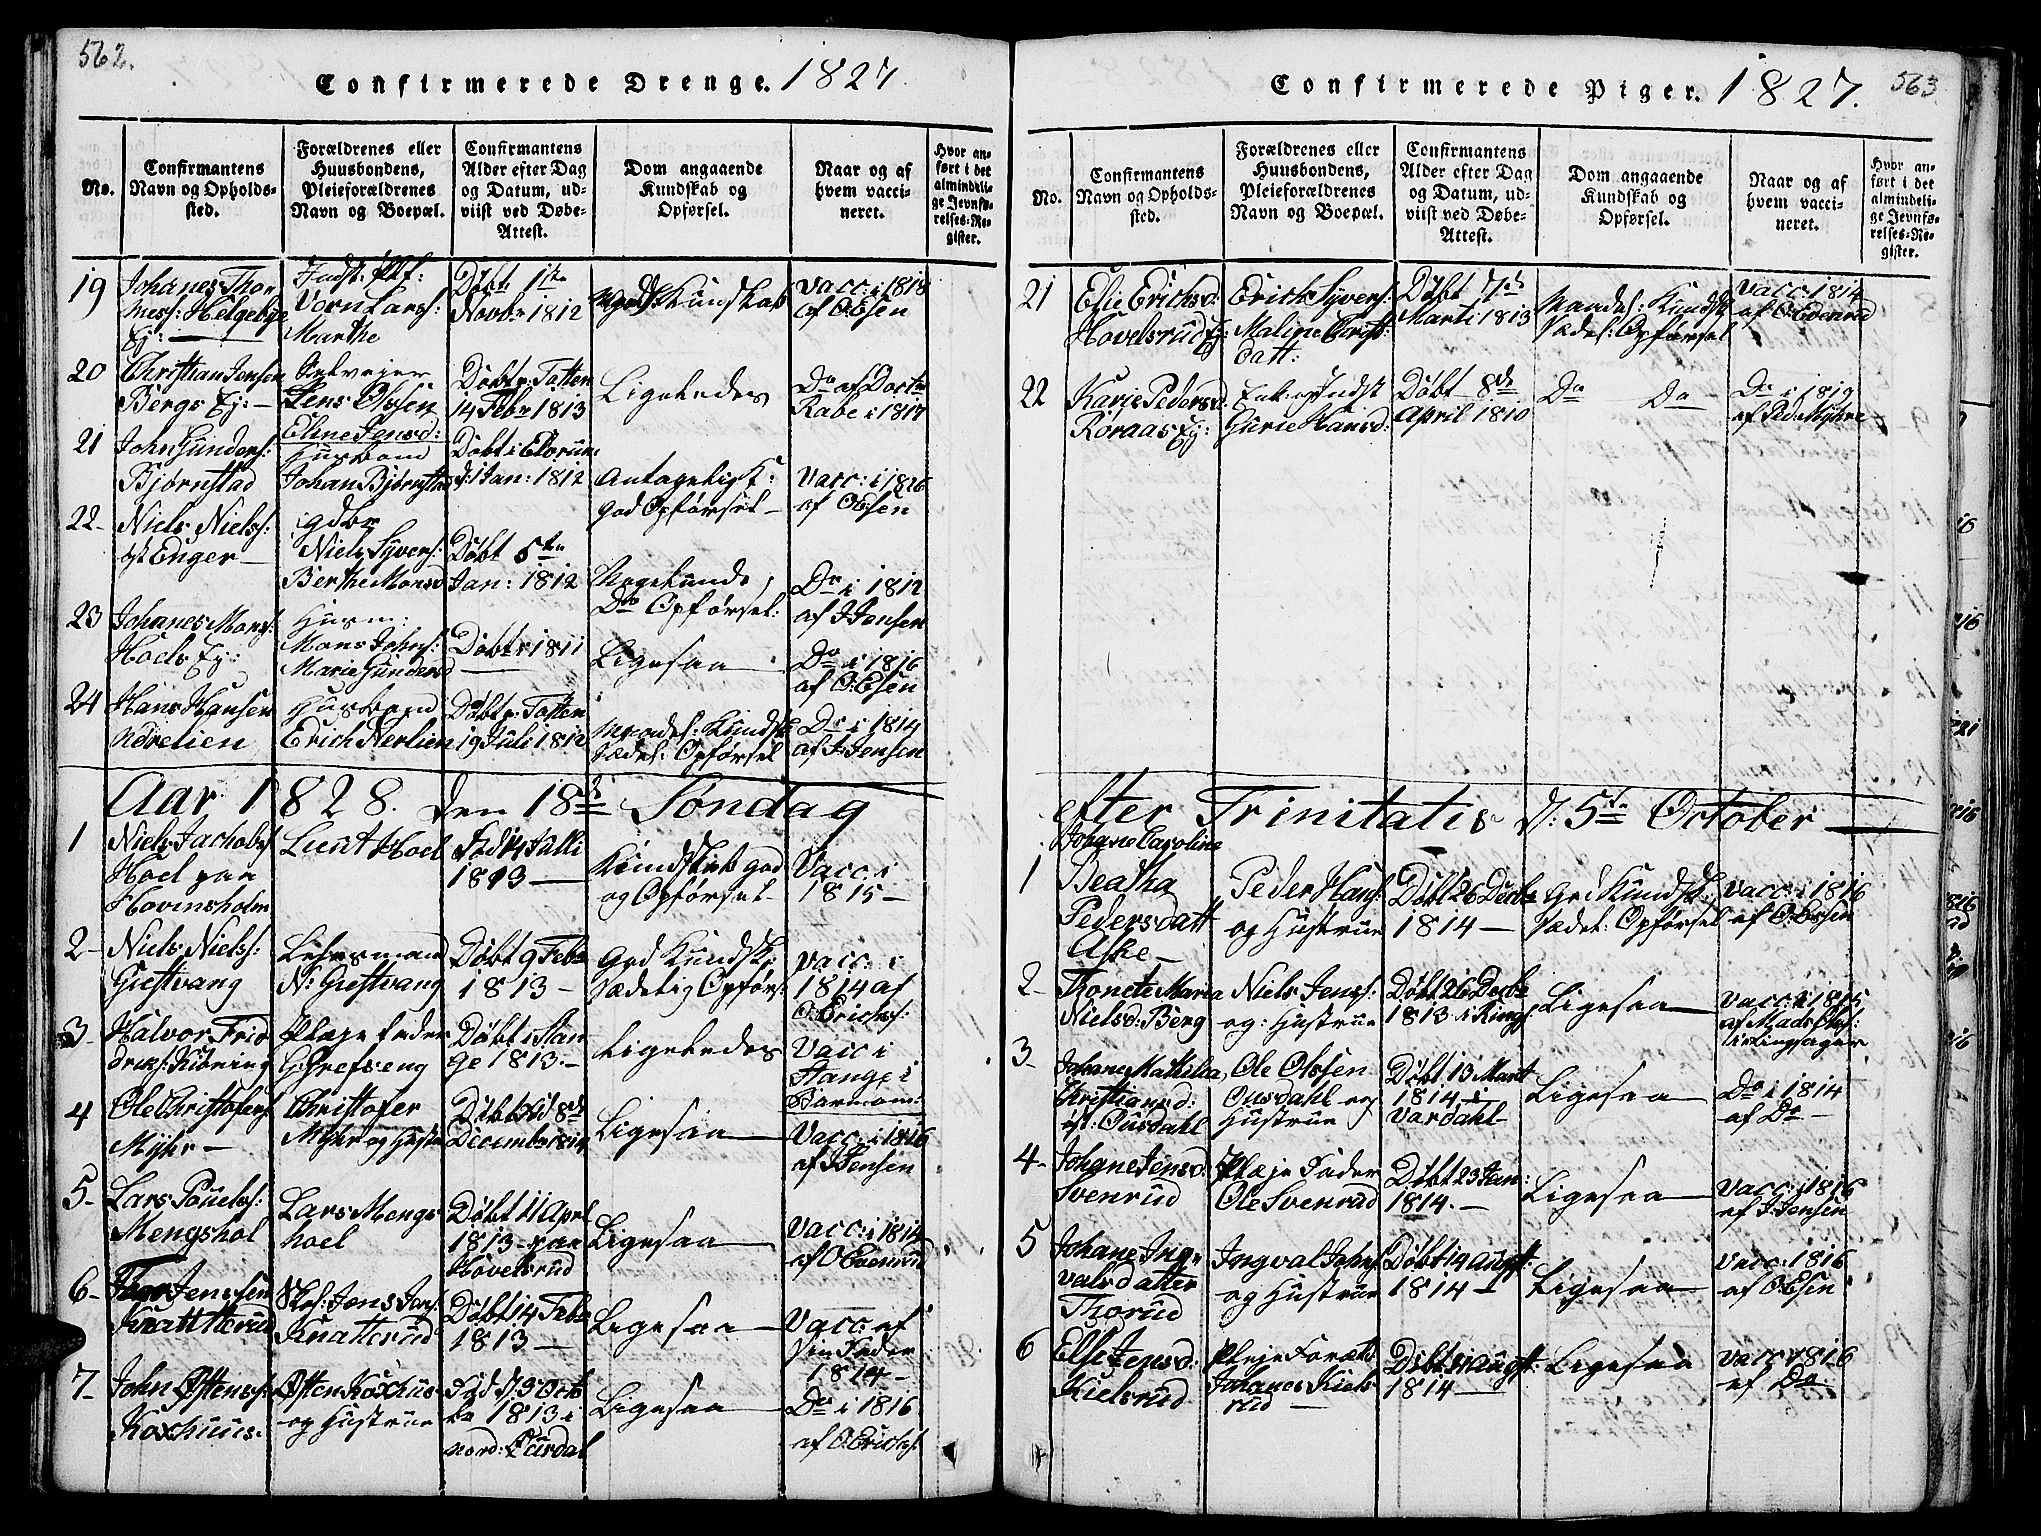 562.
Confirmerede Drenge. 1827.
No.
Confirmantens
Navn og Opholds-
sted.
Forældrenes eller
Huusbondens,
Pleieforældrenes
Navn og Boepæl.
Confirmantens
Alder efter Dag
og Datum, ud-
viist ved Døbe-
Attest.
Dom angaaende
Kundskab og
Opførsel.
Naar og af
hvem vacci-
neret.
Hvor an-
ført i det
almindeli-
ge Jevnfø-
relses-Re-
gister.
19
Johanes Tho-
mess: Helgebye
Ej:
Lars:
Marthe
Døbt 1te
Novbr 1812
Kundskab
Vacc: i 1818
af O:Esen
20
Christian Jensen
Bergs Ej:
Jens Olssen
Eline Jensd:
Døbt p: Totten
14 Febr 1813
Ligeledes
Do af Doctr
Rabe i 1817
21
John Gunders:
Bjørnstad
Husbond
Johan Bjørnstad
Døbt i Elverum
d: 1 Jan: 1812
Antageligt K:
god Opførsel
Vacc: i 1826
af O:Esen
22
Niels Niels:
Enger
Gdbr
Niels Syvers:
Berthe Monsd
Døbt 5te
Jan: 1812
Do Opførsel:
Do i 1812
af J Jensen
23
Johanes Mons:
Hoels Ej:
Husm:
Mons Johns:
Marie Gundersd
Døbt 1811
Ligesaa
Do i 1816
af O:Esen
24
Hans Hansen
Nerelien
Husbond
Erich Nerlien
Døbt p: Totten
19 Juli 1812
Maadel: Kundsk
Sædel: Opførsel
Do i 1814
af J: Jensen
Aar 1828. den 18de Søndag
1
Niels Jachobs:
Hoel paa
Hovinsholm
Lieut Hoel
Fød 14 Julli
1813
Kundskab god
og Opførsel
Vacc: i
1815
2
Niels Niels:
Giestvang
Lehnsmand
N: Giestvang
Døbt 9 Febr
1813
God Kundsk:
Sædelig Opførs:
Vacc: i
1814 af
O:Erichs:
3
Halvor Frid
Plejefader
Grefseng
Døbt i Stan
ge 1813
Ligeledes
Vacc i
Stange i
4
Ole Christofers:
Myhr
Christofer
Myhr og Hustr
Døbt 8de
Decembr 1814
Ligesaa
Vacc: i 1816
af J:Jensen
5
Lars Pouels:
Mengshol
Lars Mengs
hoel
Døbt 11 Apr:
1813 paa
Hovelsrud
Ligesaa
Vacc: i 1814
af O Evenrud
6
Jenssen
Knatterud
Jens Jens:
Knatterud
Døbt 14 Febr
1813
Ligesaa
Vacc: af
sin Fader
1814
7
John Østens:
Koxhuus
Østen Koxhus
og Hustrue
Fød d: 3 Octo
br 1813 i
nord: Ousdal
Ligesaa
Do i 1816
af O:Erichs:
563
Confirmerede Piger. 1827.
No.
Confirmantens
Navn og Opholds-
sted.
Forældrenes eller
Huusbondens,
Pleieforældrenes
Navn og Boepæl.
Confirmantens
Alder efter Dag
og Datum, ud-
viist ved Døbe-
Attest.
Dom angaaende
Kundskab og
Opførsel.
Naar og af
hvem vacci-
neret.
Hvor an-
ført i det
almindeli-
ge Jevnfø-
relses-Re-
gister.
21
Elie Erichsd:
Hovelsrud Ej:
Erich Syvers:
Maline Christ:
Datt:
Døbt 7de
Marti 1813
Maadel: Kundsk
Sædel: Opførsel
Vacc: 1814
af O:Evenrud
22
Karie Pedersd:
Roraas Ej:
Gurie Hansd:
Døbt 8de
April 1810
Do Do
Do i 1819
efter Trinitatis d: 5te October
1
Johane Caroline
Beatha
Pedersdatt
Aske
Peder Hans:
og Hustrue
Døbt 26 Decbr
1814
God Kundsk:
Sædel: Opførsel
Vacc: i 1816
af O:Esen
2
Thonete Maria
Nielsd: Berg
Niels Jens:
og: Hustrue
Døbt 26 Decbr
1813 i Rings
Ligesaa
Vacc: i 1815
af Mads Ols:
i Ringsager
3
Johane Mathilda
Christiansd:
Ousdahl
Ole Olssen
Ousdahl og
Hustrue
Døbt 13 Mart
1814 i
Vardahl
Ligesaa
Do i 1814
af Do
4
Johane Jensd:
Svenrud
Pleje Fader
Ole Svenrud
Døbt 23 Jan:
1814
Ligesaa
Vacc: i 1816
af J:Jensen
5
Johane Ing-
valsdatter
Thorud
Ingval Johns:
og Hustrue
Døbt 14 Augst:
1814
Ligesaa
Vacc: 1816
af O:Esen
6
Else Jensd:
Kielsrud
Pleje Foræld
Johanes Kiels
rud
Døbt 21 Augst:
1814
Ligesaa
Vacc 1816
af Do